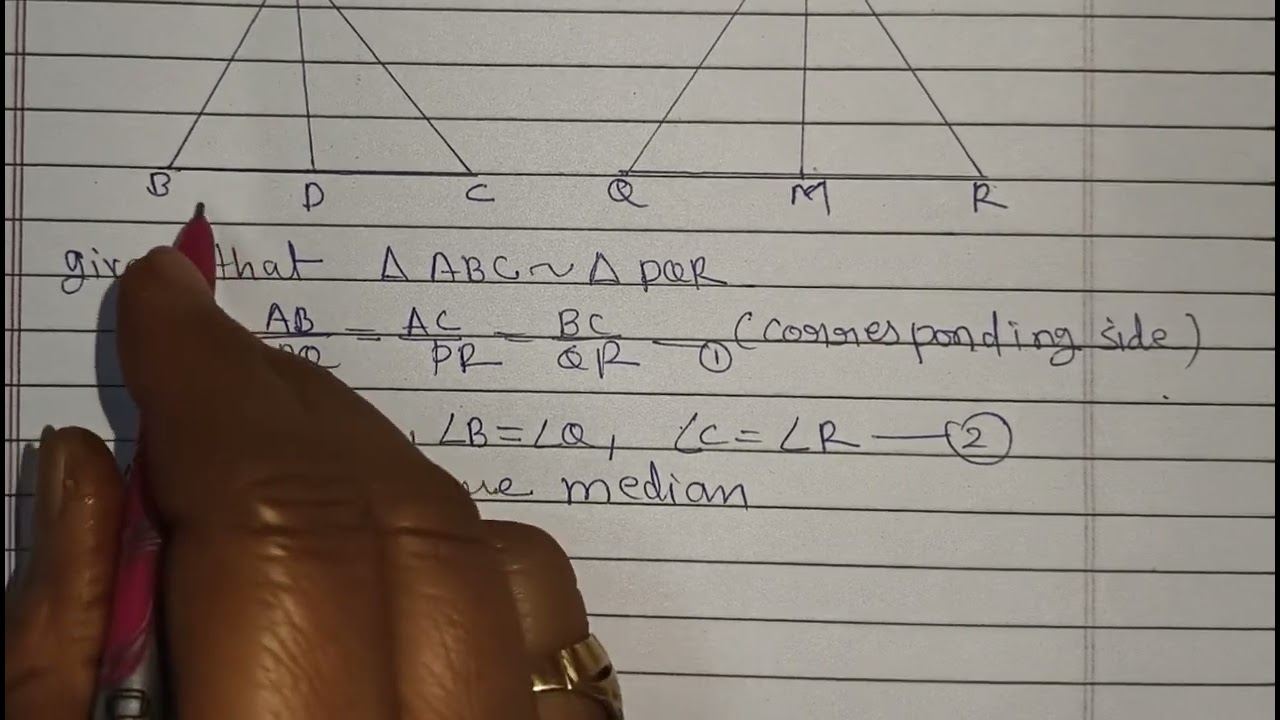 B D C Q M R
that Δ ABC ~ Δ PQR
AB/PQ = AC/PR = BC/QR — ① (corresponding side)
, ∠B = ∠Q, ∠C = ∠R — ②
median